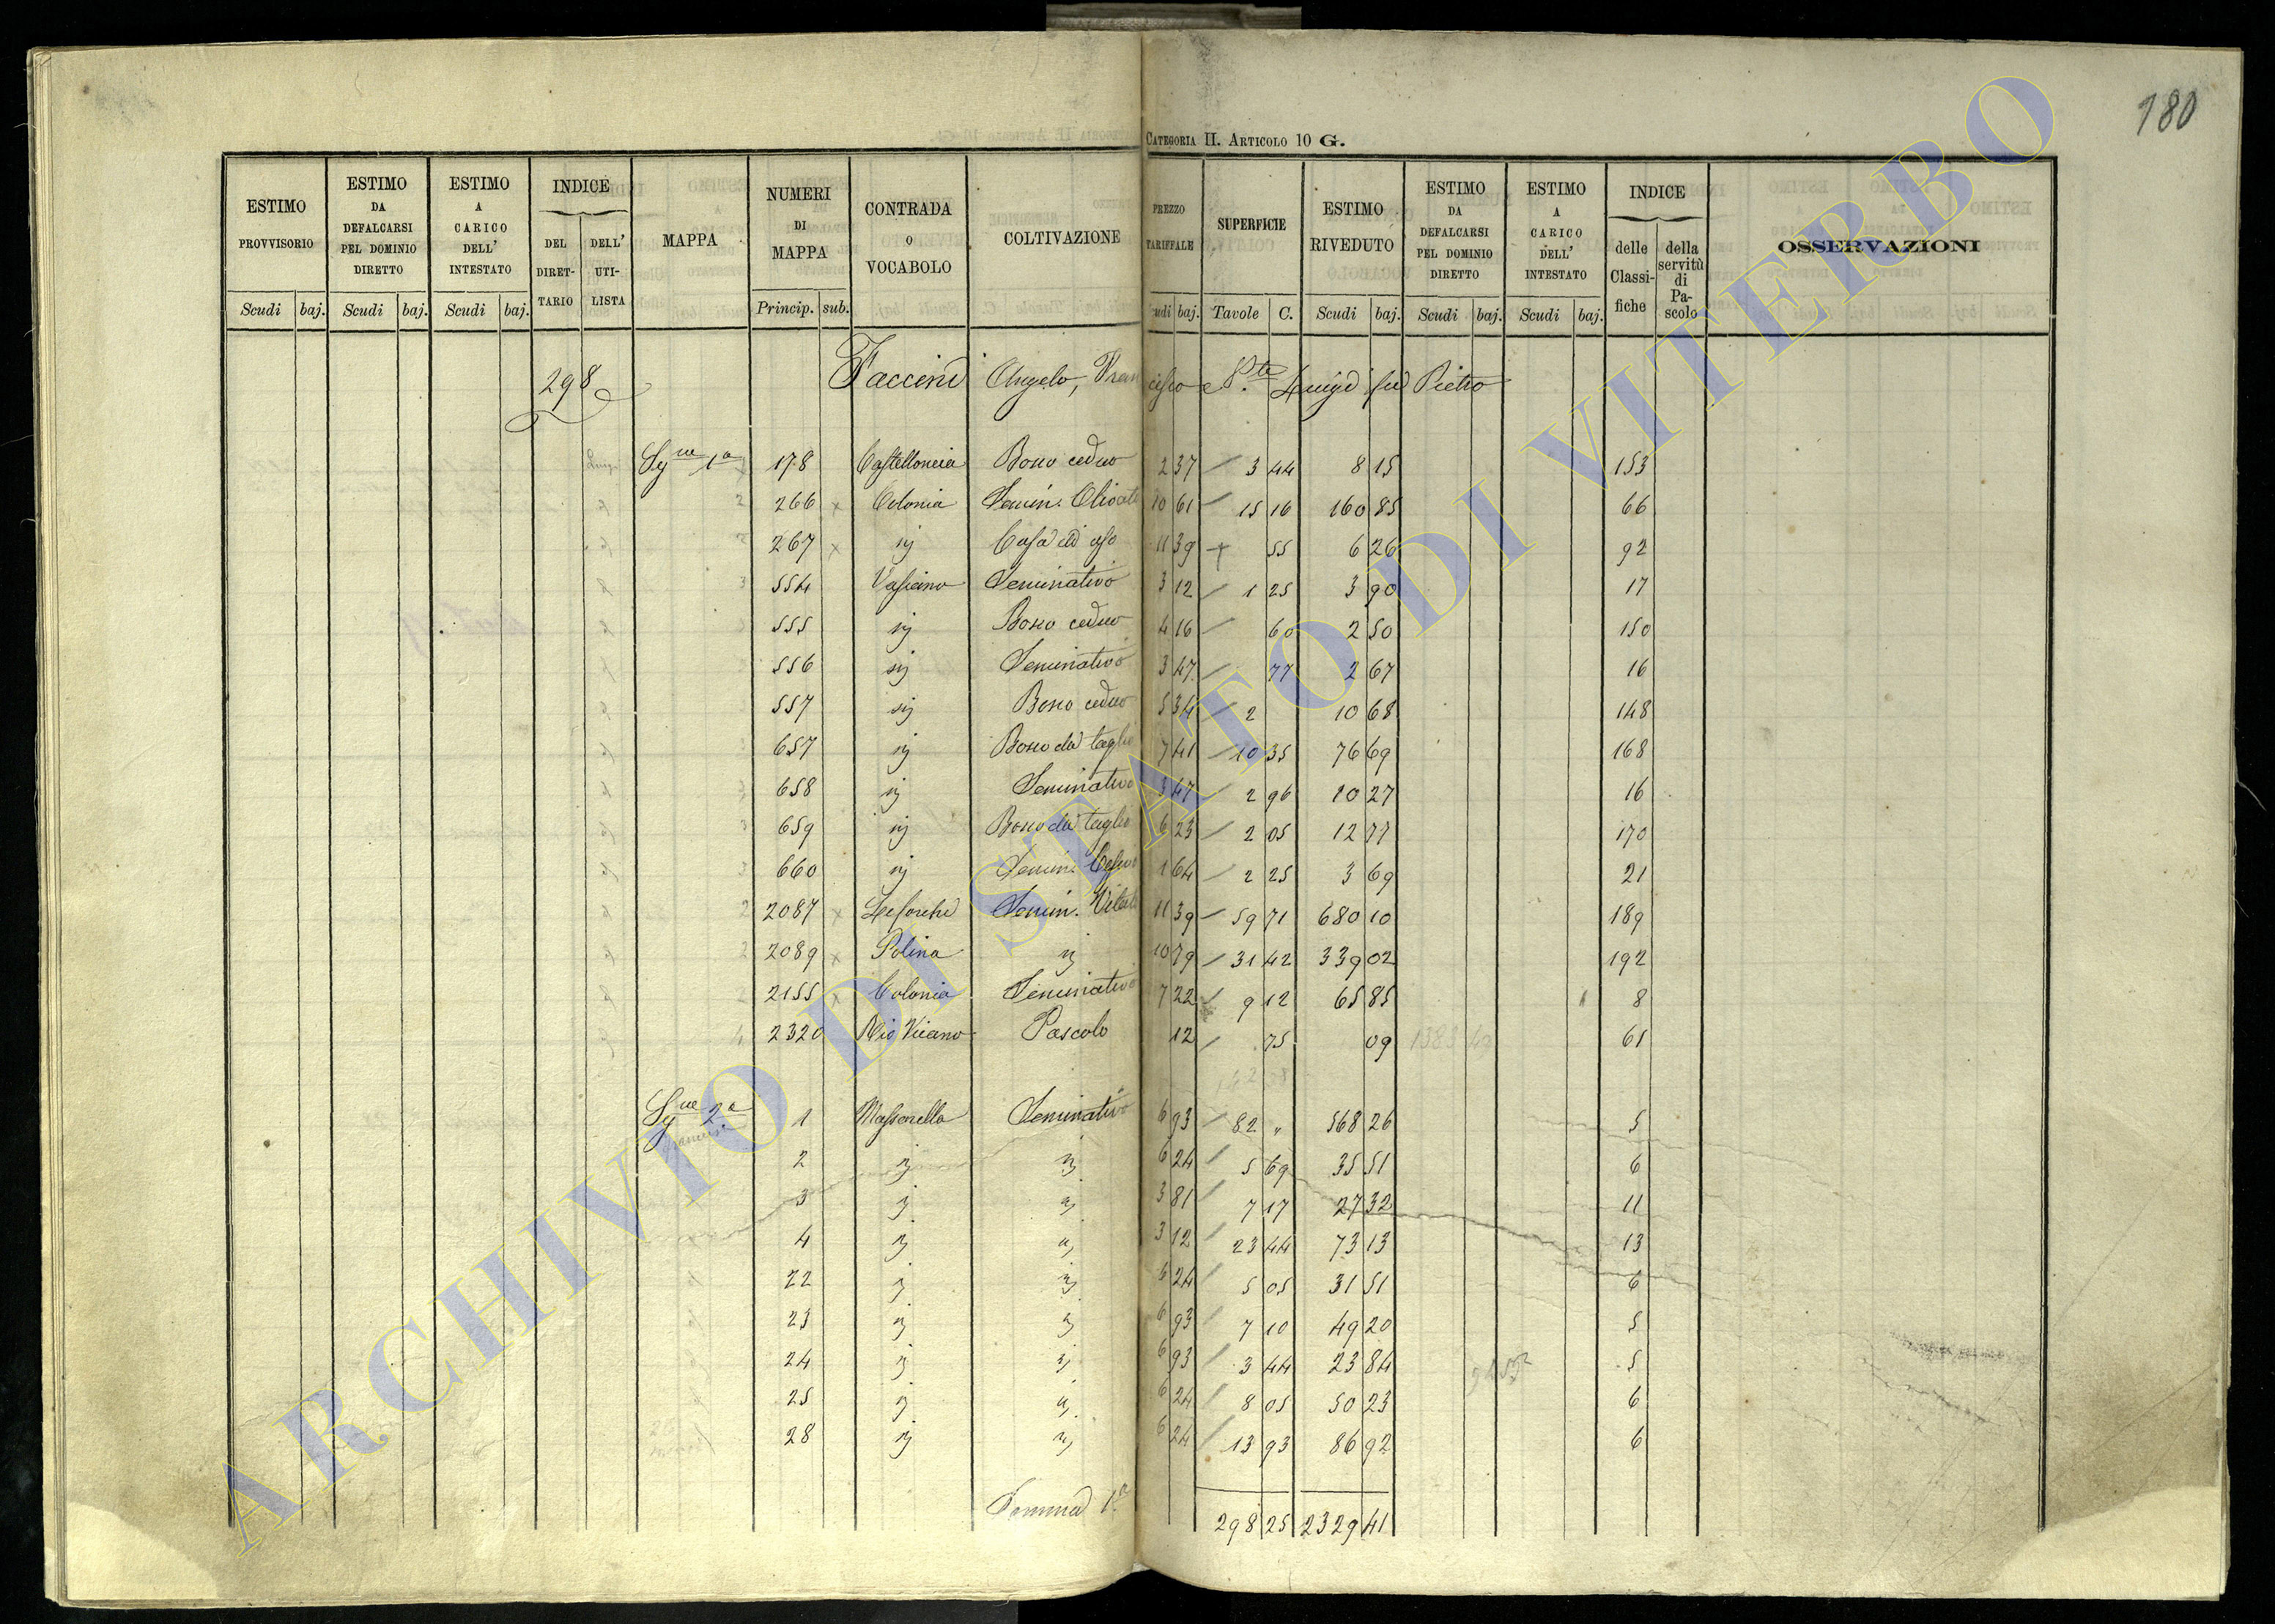 180
CATEGORIA II. ARTICOLO 10 G.
ESTIMO PROVVISORIO Scudi baj.
ESTIMO DA DEFALCARSI PEL DOMINIO DIRETTO Scudi baj.
ESTIMO A CARICO DELL' INTESTATO Scudi baj.
INDICE DEL DIRETTARIO DELL' UTILISTA
MAPPA
NUMERI DI MAPPA Princip. sub.
CONTRADA O VOCABOLO
COLTIVAZIONE
PREZZO TARIFFALE udi baj.
SUPERFICIE Tavole C.
ESTIMO RIVEDUTO Scudi baj.
ESTIMO DA DEFALCARSI PEL DOMINIO DIRETTO Scudi baj.
ESTIMO A CARICO DELL' INTESTATO Scudi baj.
INDICE delle Classifiche della servitù di Pascolo
OSSERVAZIONI
298 Faccini Angelo, Francesco e Luigi fu Pietro
Sne 1a 178 Castelloncia Bosco ceduo 2 37 3 44 8 15 153
266 x Colonia Semin. Olivato 10 61 15 16 160 85 66
267 x ij Casa di uso 11 39 55 6 26 92
554 Vasciano Seminativo 3 12 1 25 3 90 17
555 ij Bosco ceduo 4 16 60 2 50 150
556 ij Seminativo 3 47 77 2 67 16
557 ij Bosco ceduo 5 34 2 10 68 148
657 ij Bosco da taglio 7 41 10 35 76 69 168
658 ij Seminativo 3 47 2 96 10 27 16
659 ij Bosco da taglio 6 23 2 05 12 77 170
660 ij Semin. 1 64 2 25 3 69 21
2087 x Le forche Semin. Vitato 11 39 59 71 680 10 189
2089 x Polina ij 10 79 31 42 339 02 192
2155 x Colonia Seminativo 7 22 9 12 65 85 8
2320 Rio Vicano Pascolo 12 75 09 61
Sne 2a 1 Massarella Seminativo 6 93 82 " 568 26 5
2 ij ij 6 24 5 69 35 51 6
3 ij ij 3 81 7 17 27 32 11
4 ij ij 3 12 23 44 73 13 13
22 ij ij 6 24 5 05 31 51 6
23 ij ij 6 93 7 10 49 20 5
24 ij ij 6 93 3 44 23 84 5
25 ij ij 6 24 8 05 50 23 6
28 ij ij 6 24 13 93 86 92 6
Somma 298 25 2329 41
ARCHIVIO DI STATO DI VITERBO